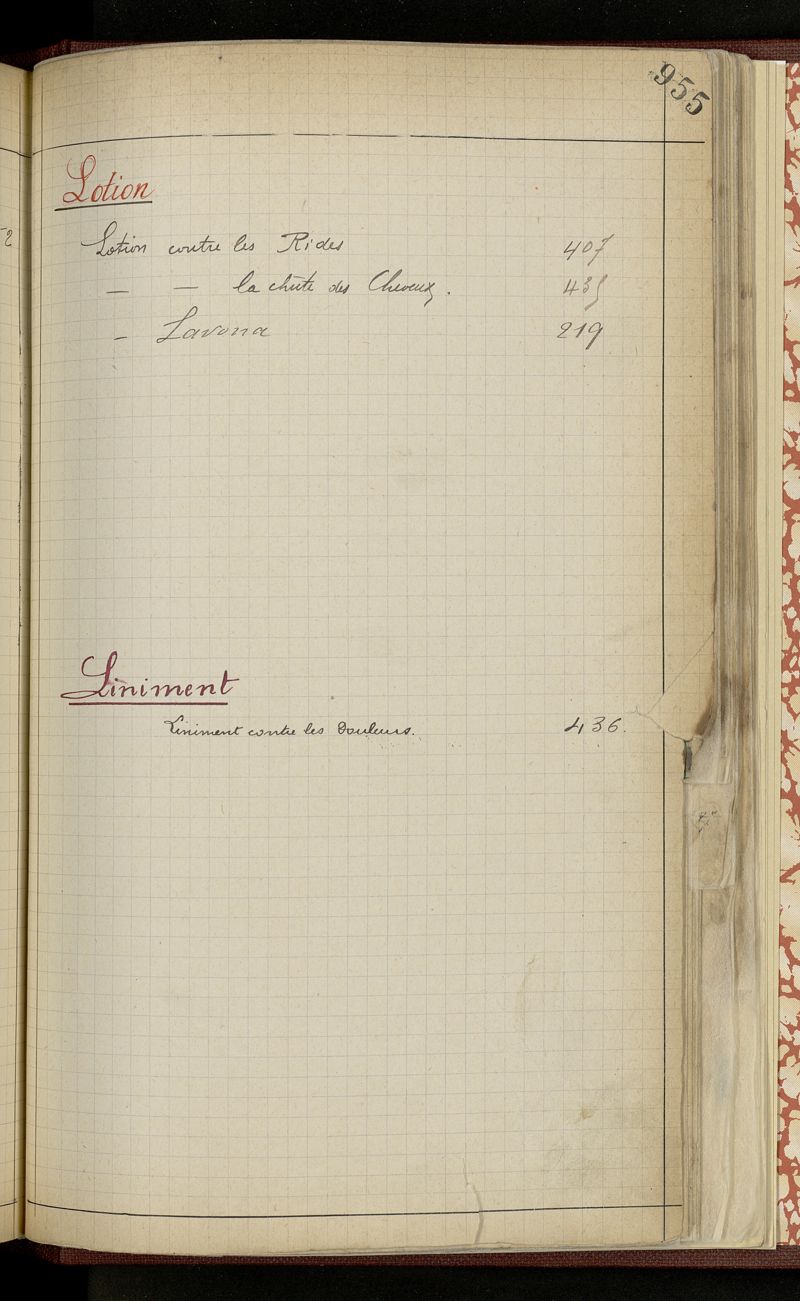 955
Lotion
Lotion contre les Rides 407
— — la chûte des Cheveux. 435
— Lavona 219
Liniment
Liniment contre les Douleurs. 436.